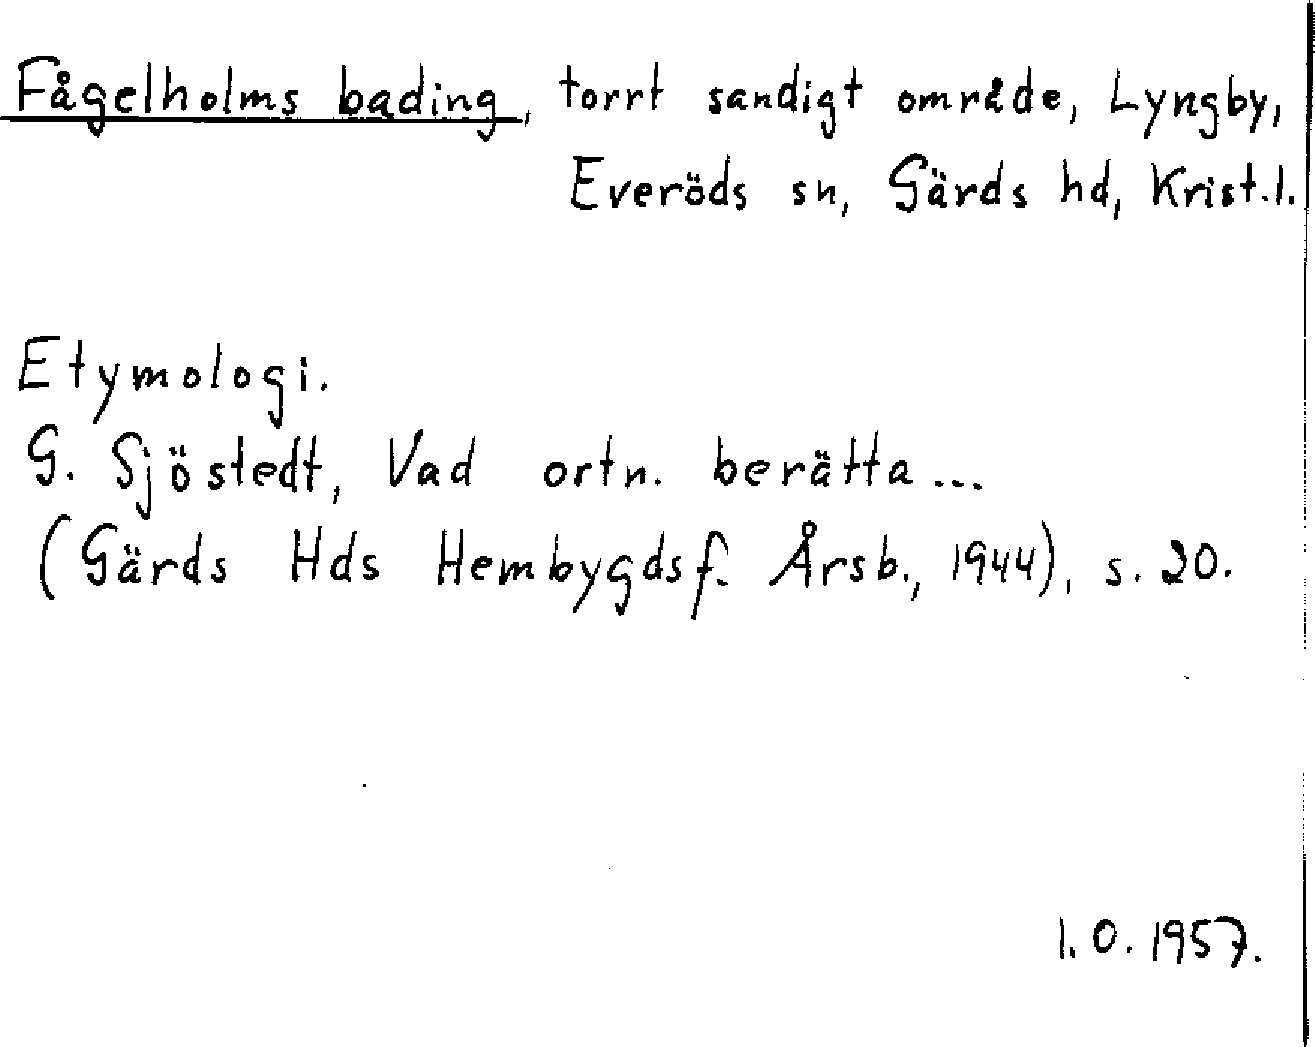 Fågelholms bading, torrt sandigt område, Lyngby,
Everöds sn, Gärds hd, Krist.l.
Etymologi.
G. Sjöstedt, Vad ortn. berätta...
(Gärds Hds Hembygdsf. Årsb., 1944), s. 20.
I. O. 1957.